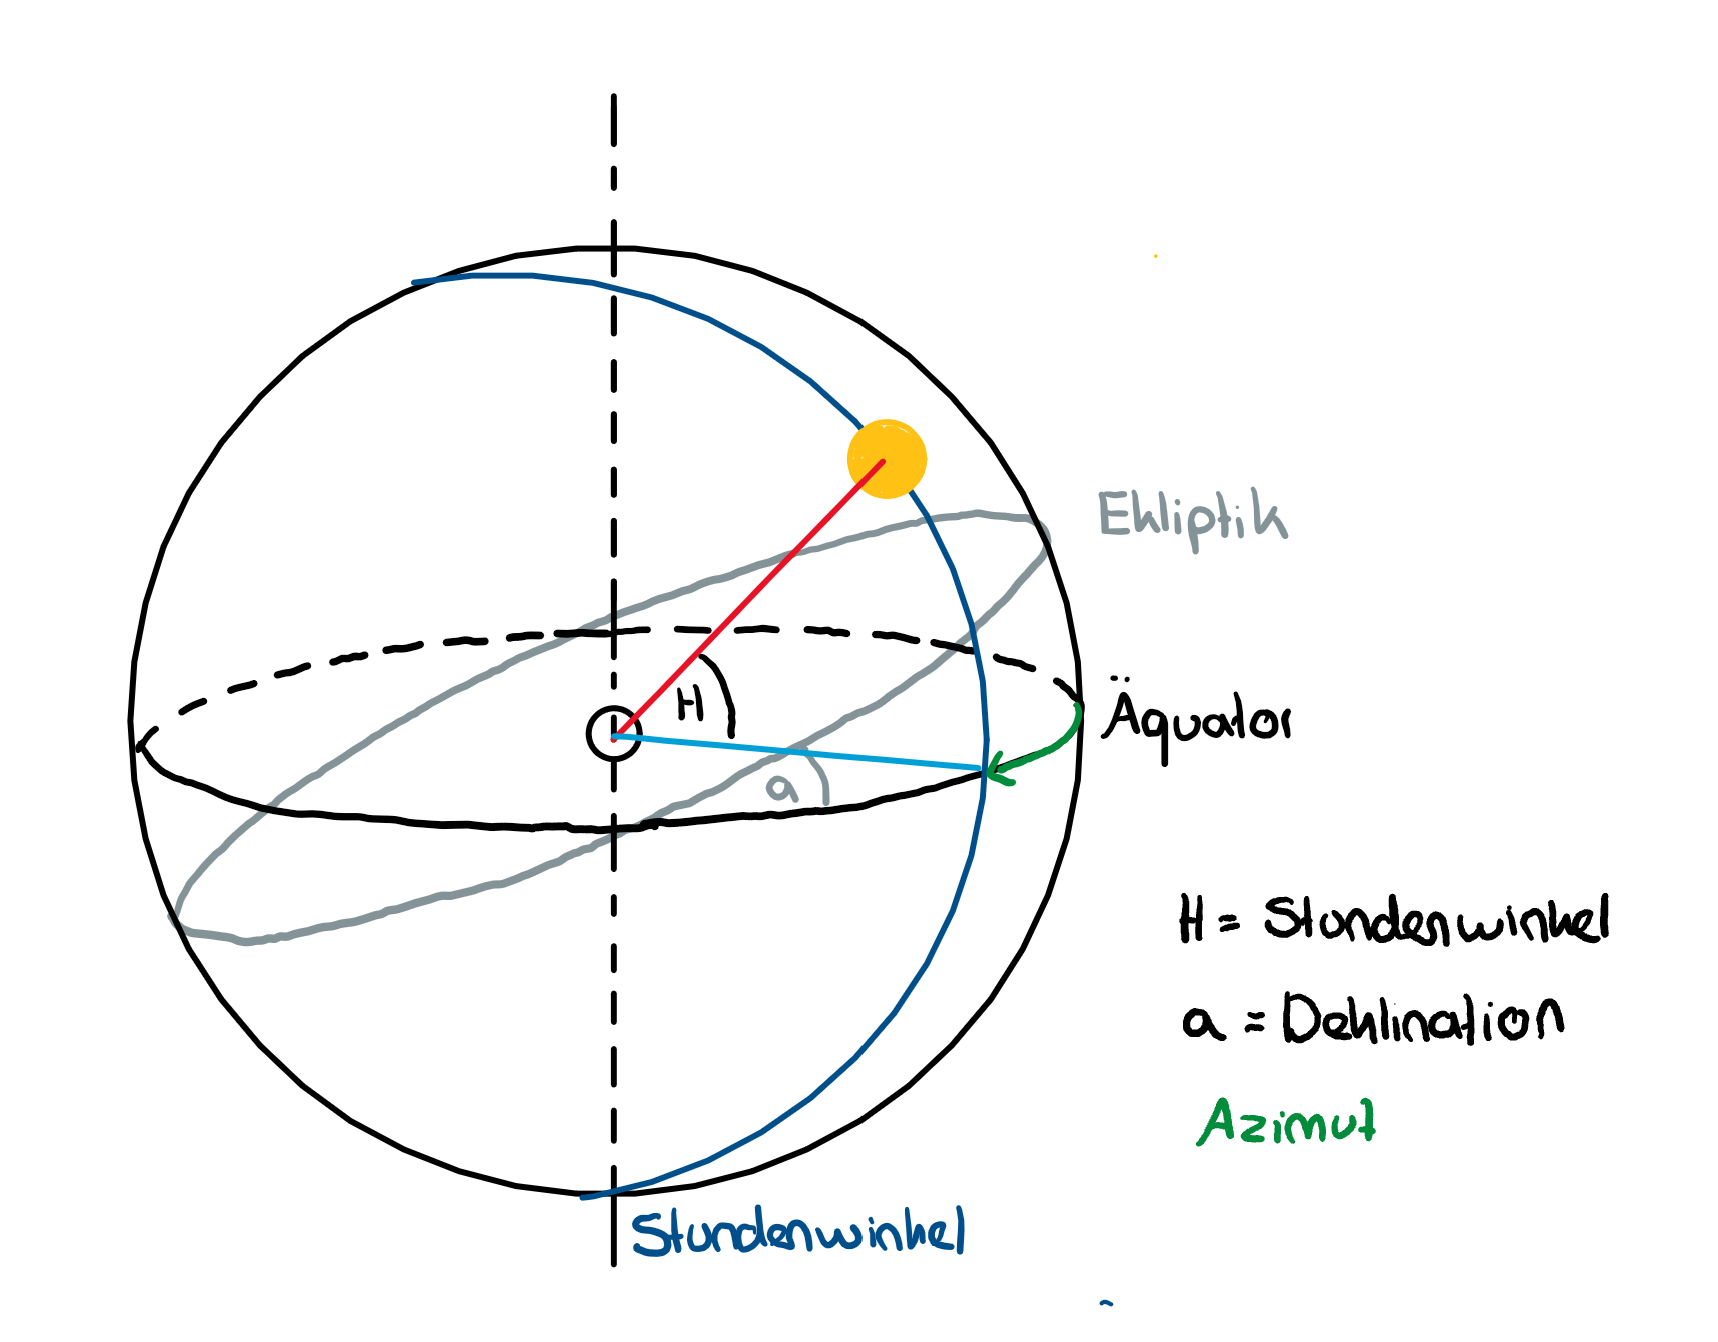 Ekliptik
H
Äquator
a
H = Stundenwinkel
a = Deklination
Azimut
Stundenwinkel